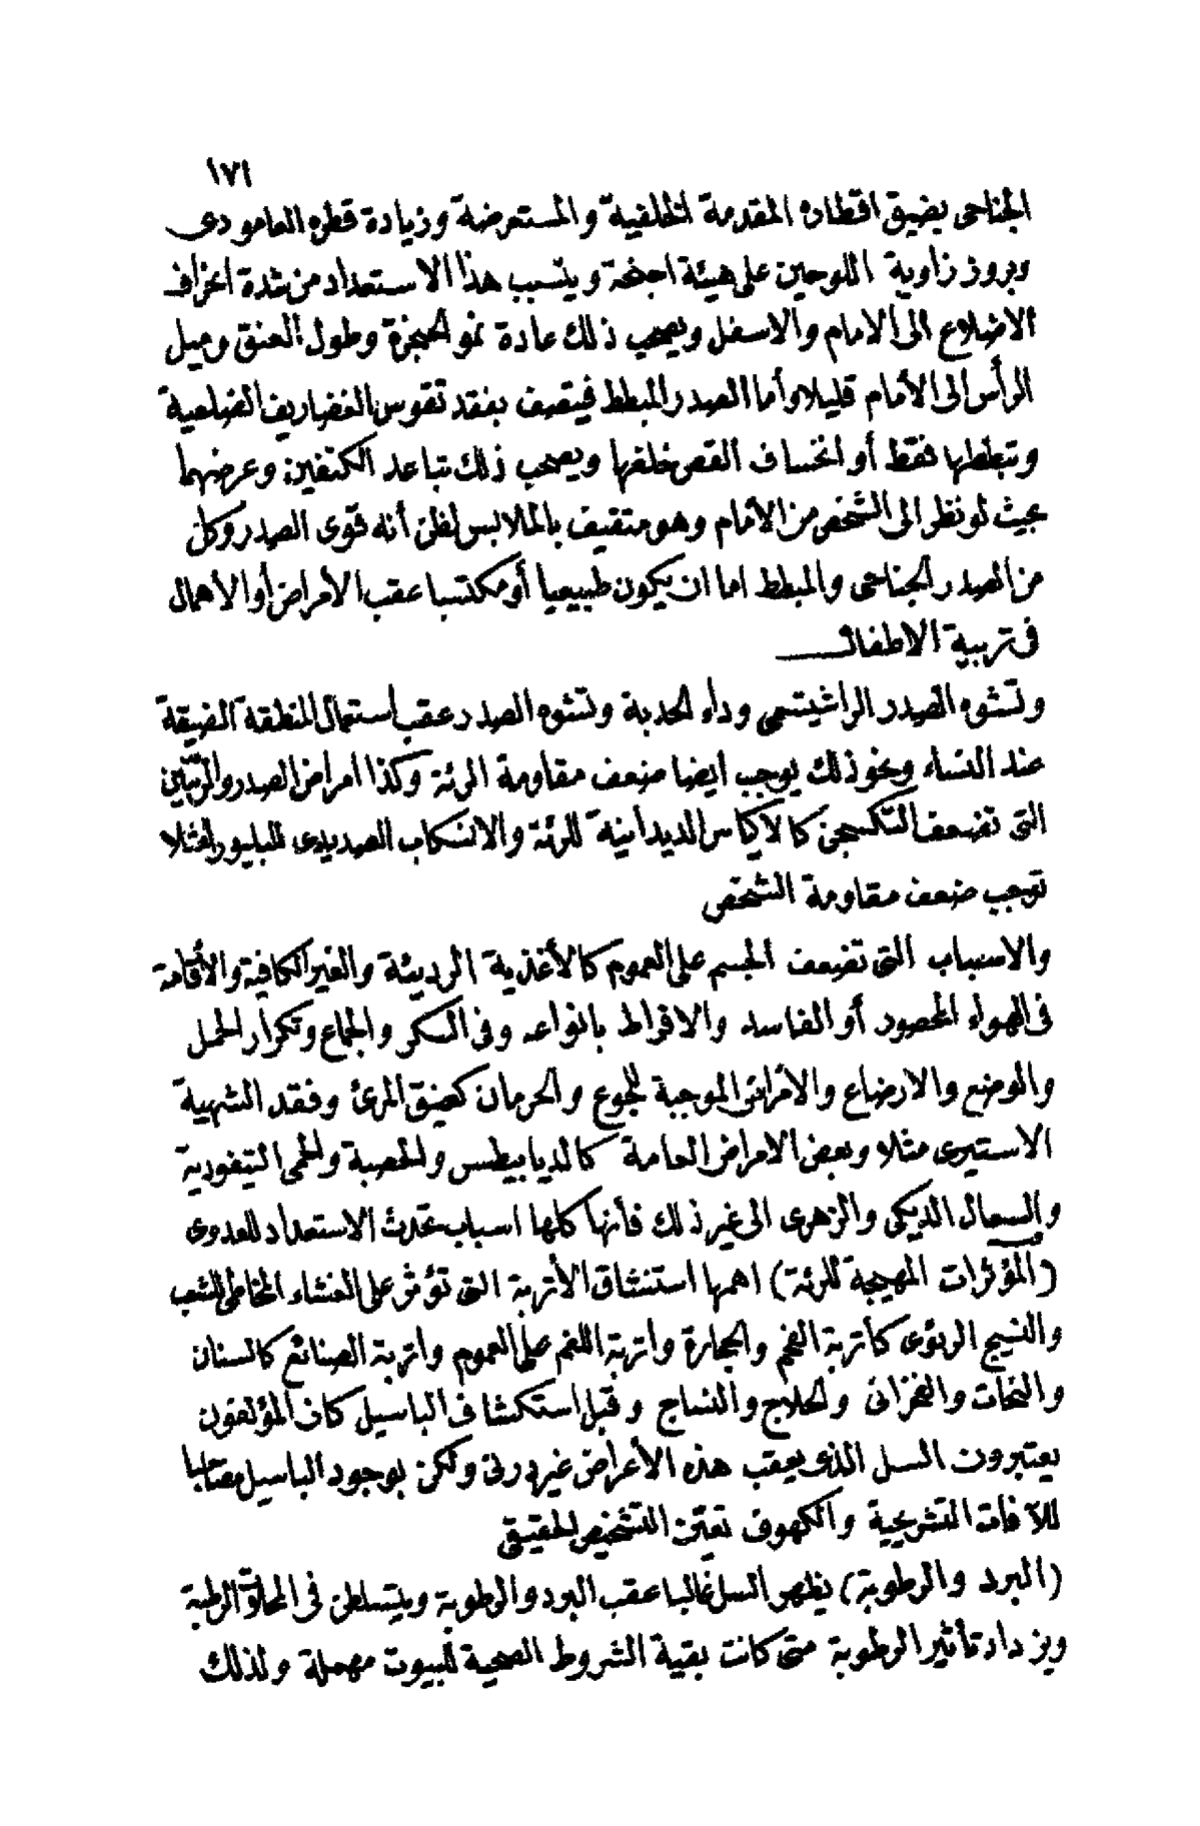 ١٧١
الجناحى بضيق اقطاره المقدمة الخلفية والمستعرضة وزيادة قطره العامودى
وبروز زاوية اللوحين على هيئة اجنحة ويتسبب هذا الاستعداد من شدة انحراف
الاضلاع الى الامام والاسفل ويصحب ذلك عادة نمو الحنجرة وطول العنق وميل
الرأس الى الأمام قليلا وأما الصدر المبطط فيتصف بفقد تقوس الغضاريف الضلعية
وتبططها فقط أو انخساف القص خلفها ويصحب ذلك تباعد الكتفين وعرضهما
بحيث لو نظر الى الشخص من الأمام وهو متقيف بالملابس لظن أنه قوى الصدر وكل
من الصدر الجناحى والمبطط اما ان يكون طبيعيا أو مكتسبا عقب الأمراض أو الأهمال
فى تربية الاطفال
وتشوه الصدر الراشيتسمى وداء الحدبة وتشوه الصدر عقب استعمال المنطقة الضيقة
عند النساء ونحو ذلك يوجب ايضا ضعف مقاومة الرئة وكذا امراض الصدر والرئتين
التى تضعف التكسجن كالأكياس الديدانية للرئة والانسكاب الصديدى للبليورا مثلا
توجب ضعف مقاومة الشخص
والاسباب التى تضعف الجسم على العموم كالأغذية الرديئة والغير الكافية والأقامة
فى الهواء المحصور أو الفاسد والافراط بانواعه وفى السكر والجماع وتكرار الحمل
والوضع والارضاع والأمراض الموجبة للجوع والحرمان كضيق المرئ وفقد الشهية
الاستيرى مثلا وبعض الامراض العامة كالديابيطس والحصبة والحمى التيفودية
والسعال الديكى والزهرى الى غير ذلك فأنها كلها اسباب تحدث الاستعداد للعدوى
(المؤثرات المهيجة للرئة) اهمها استنشاق الأتربة التى تؤثر على الغشاء المخاطى للشعب
والنسيج الرئوى كأتربة الفحم والحجارة وأتربة اللغم على العموم واتربة الصنائع كالسنان
والنحات والفخرانى والحلاج والنساج وقبل استكشاف الباسيل كان المؤلفون
يعتبرون السل الذى يعقب هذه الأعراض غير درنى ولكن بوجود الباسيل مصاحبا
للآفات التشريحية والكهوف تعين التشخيص الحقيقى
(البرد والرطوبة) يظهر السل غالبا عقب البرد والرطوبة ويتسلطن فى المحلات الرطبة
ويزداد تأثير الرطوبة متى كانت بقية الشروط الصحية للبيوت مهملة ولذلك